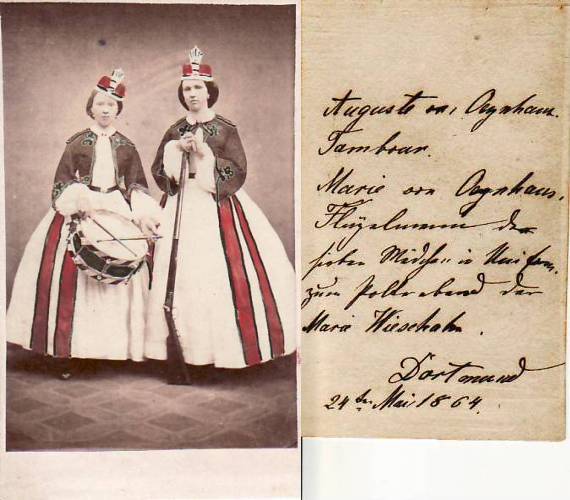 Auguste von Oeynhaus.
Tambour.
Marie von Oeynhaus.
Flügelmann der
sieben Mädchen in Uniform
zum Polterabend der
Marie Wiesehahn.
Dortmund
24ten Mai 1864.